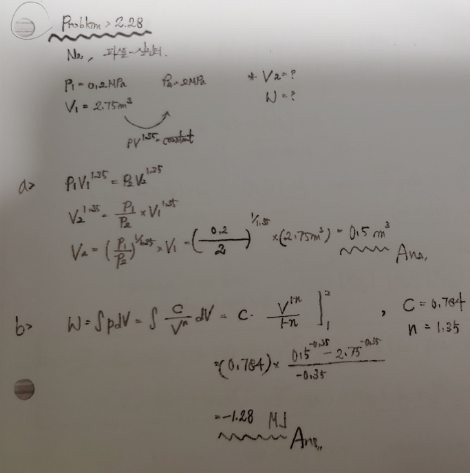 Problem > 2.28
N₂,
P₁ = 0.2 MPa P₂ = 2 MPa * V₂ = ?
V₁ = 2.75 m³ W = ?
PV^1.35 = constant
a> P₁V₁^1.35 = P₂V₂^1.35
V₂^1.35 = P₁/P₂ × V₁^1.35
V₂ = (P₁/P₂)^1/1.35 × V₁ = (0.2/2)^1/1.35 × (2.75 m³) = 0.5 m³
Ans,
b> W = ∫pdV = ∫ C/V^n dV = C · V^1-n/1-n ]₁² , C = 0.784
n = 1.35
= (0.784) × 0.5^-0.35 - 2.75^-0.35/-0.35
= -1.28 MJ
Ans,,